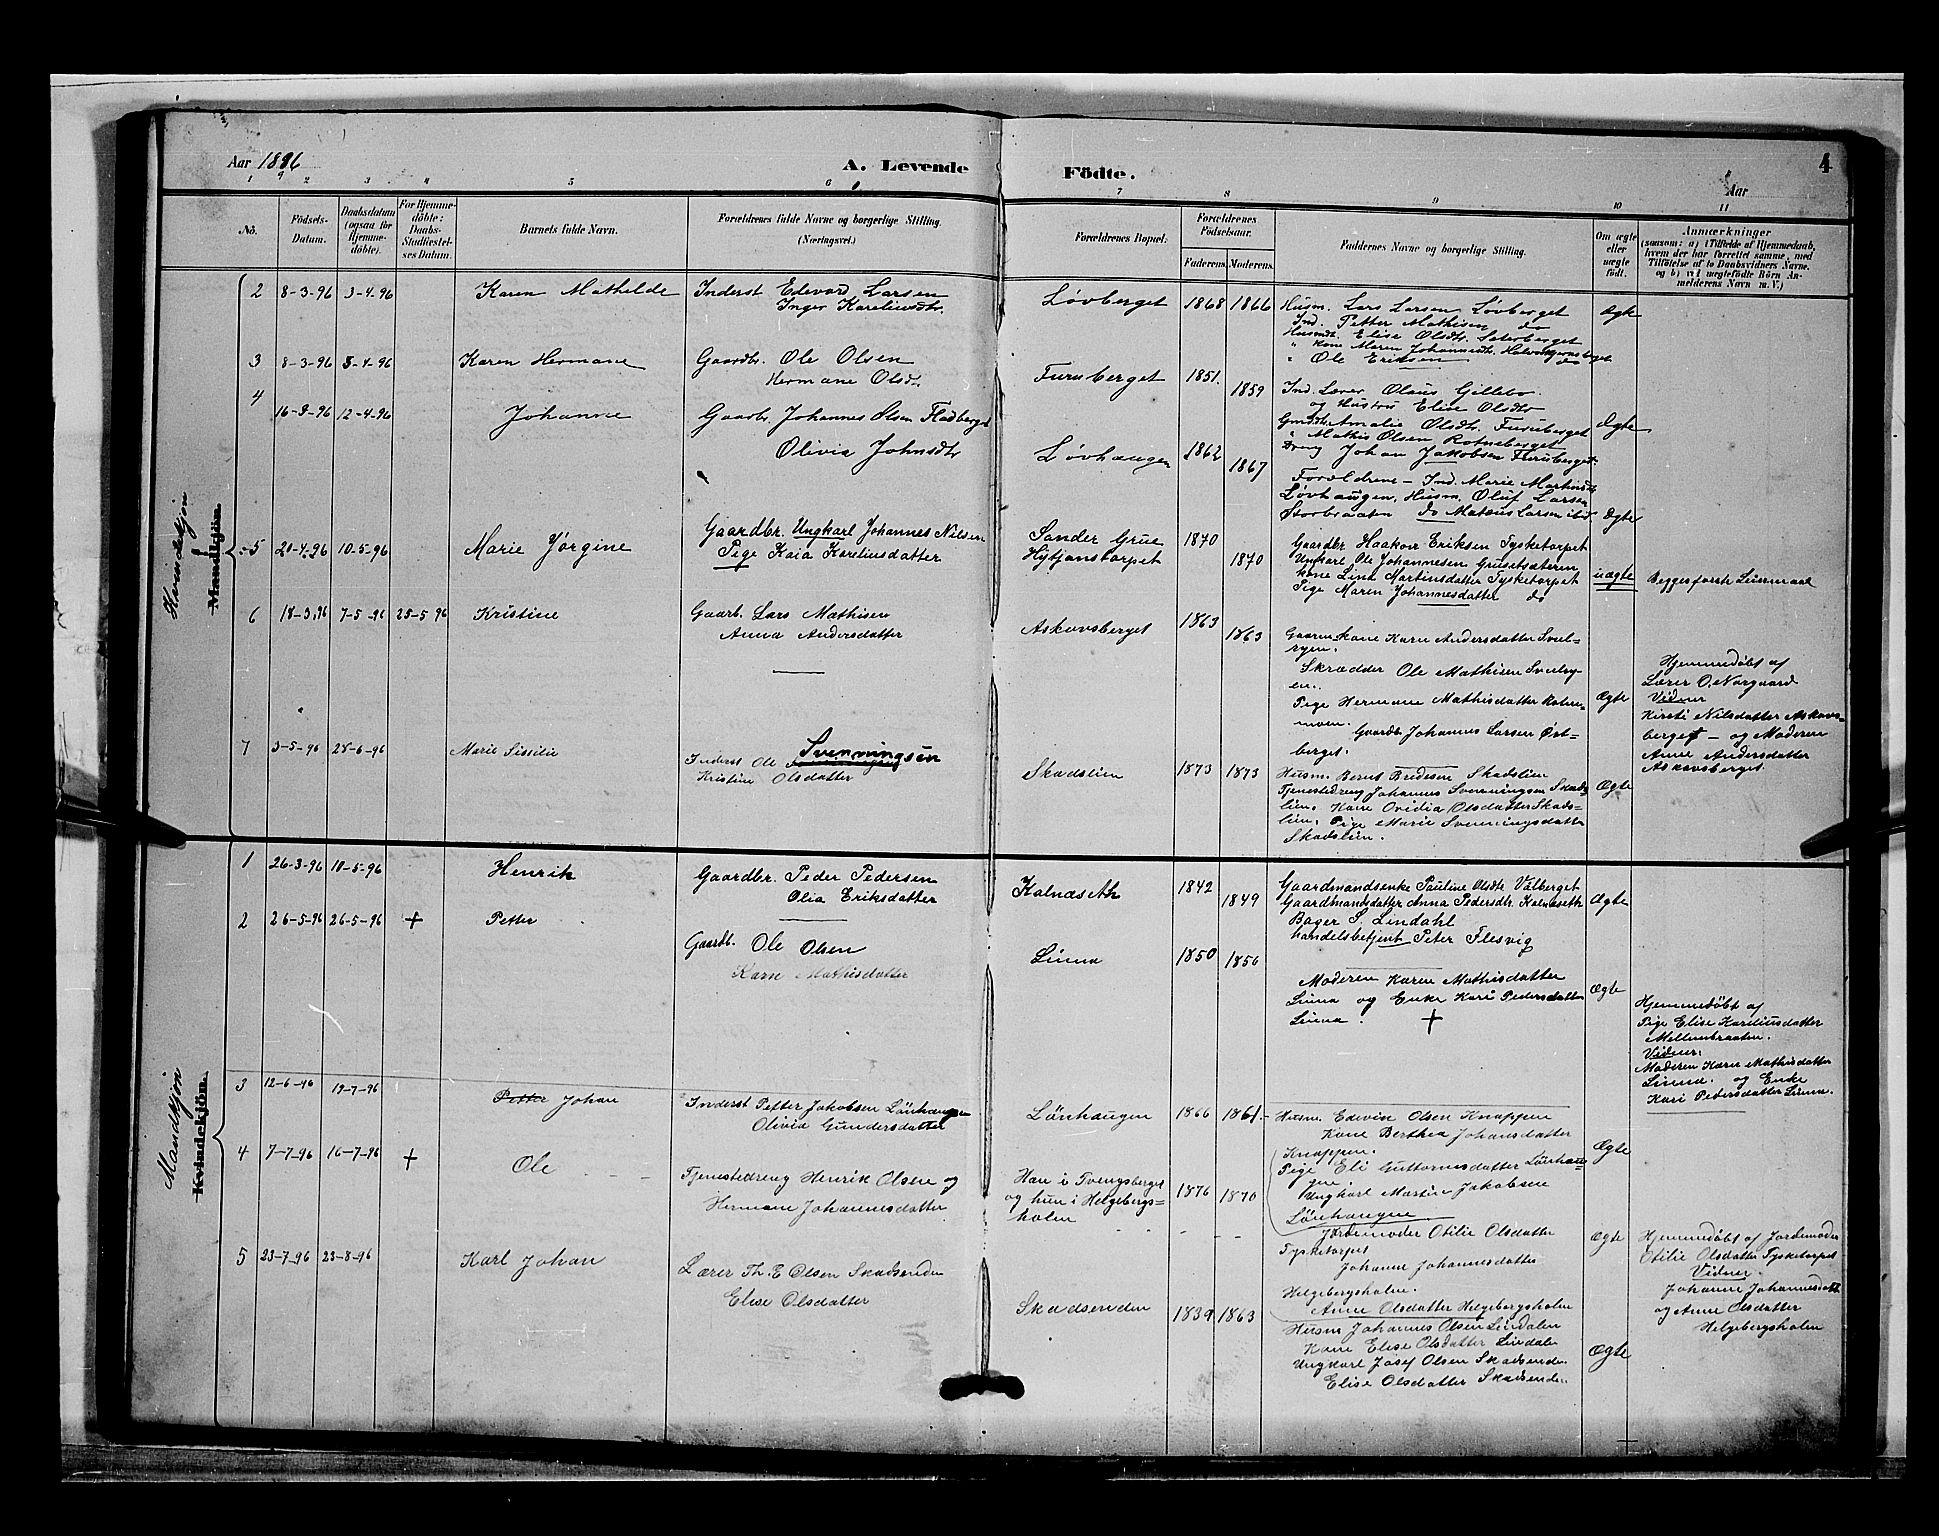 Aar 1896
A. Levende
Födte.
Aar
4
1 2 3 4 5 6 7 8 9 10 11
No.
Födsels-
Datum.
Daabsdatum
(ogsaa for
Hjemme-
döbte).
For Hjemme-
döbte:
Daabs-
Stadfæstel-
ses Datum.
Barnets fulde Navn.
Forældrenes fulde Navne og borgerlige Stilling.
(Næringsvei.)
Forældrenes Bopæl.
Forældrenes
Födselsaar.
Faderens. Moderens.
Faddernes Navne og borgerlige Stilling.
Om ægte
eller
uægte
født.
Anmærkninger
(saasom: a) i Tilfælde af Hjemmedaab,
hvem der har forrettet samme, med
Tilföielse af to Daabsvidners Navne,
og b) ved uægtefödte Börn An-
melderens Navn m. V.)
Kvindekjön
Mandkjön.
2 8-3-96 3-4-96 Karen Mathilde
Inderst Edevard Larsen
Inger Kareliusdtr.
Løvberget 1868 1866
Husm. Lars Larsen Løvberget
Ind. Petter Mathisen do
Husmdt. Elise Olsdtr.
" Kone Maren Johannesdtr.
" Ole Eriksen do
Ægte
3 8-3-96 3-4-96 Karen Hermane
Gaardbr. Ole Olsen
Hermane Olsdt.
Furuberget 1851. 1859
Ind. Lærer Olaus Gillebo.
og Hustru Elise Olsdtr
Gmdtr. Amalie Olsdtr. Furuberget
" Mathis Olsen Rotneberget
Dreng Johan Jakobsen Furuberget.
Ægte
4 16-3-96 12-4-96 Johanne
Gaardb. Johannes Olsen Fladberget
Olivia Johnsdtr
Løvhaugen 1862 1867
Forældrene - Ind. Marie Martinsdt.
Løvhaugen, Husm. Oluf Larsen
Storbraaten do Mathis Larsen ibid
Ægte
5 20-4-96 10-5-96 Marie Jørgine
Gaardbr. Ungkarl Johannes Nilsen
Pige Kaia Kareliusdatter
Sander Grue
Hytjanstorpet 1840 1870
Gaardbr Haakon Eriksen Tysketorpet
Ungkarl Ole Johannesen Grusetsæteren
Kone Lina Martinsdatter Tysketorpet
Pige Maren Johannesdatter do
uægte
Begges første Leiermaal
6 18-3-96 7-5-96 25-5-96 Kristine
Gaarb. Lars Mathisen
Anna Andersdatter
Askovsberget 1863 1863
Gaarm.kone Karn Andersdatter Svul-
ryen.
Skrædder Ole Mathisen Svulry-
en.
Pige Hermane Mathisdatter Roten-
moen.
Gaardb Johannes Larsen Øst-
berget.
Ægte
Hjemmedøbt af
Lærer O. Norgaard
Vidner
Kirsti Nilsdatter Askovs-
berget - og Moderen
Anne Andersdatter
Askovsberget.
7 3-5-96 28-6-96 Marie Sissilie
Inderst Ole Svenningsen
Kristine Olsdatter
Skadslien 1873 1873
Husm. Bernt Bredesen Skadslien
Tjenestedreng Johannes Svenningsen Skads-
lien. Kone Ovidia Olsdatter Skads-
lien. Pige Marie Svenningsdatter
Skadslien.
Ægte
Mandkjön
Kvindekjön.
1 26-3-96 10-5-96 Henrik
Gaardbr. Peder Pedersen
Olia Eriksdatter
Kalnæseth 1842 1849
Gaardmandsenke Pauline Olsdtr Valberget
Gaardmandsdatter Anna Pedersdtr. Kalnæseth
Bager S. Lindahl
handelsbetjent Peter Flesvig
Ægte
2 26-5-96 26-5-96 + Petter
Gaardb. Ole Olsen
Karn Mathisdatter
Linna 1850 1856
Moderen Karen Mathisdatter
Linna og Enke Kari Pedersdatter
Linna. +
Ægte
Hjemmedøbt af
Pige Elise Kareliusdatter
Mellembraaten.
Vidner:
Moderen Karn Mathisdatter
Linna. og Enke
Kari Pedersdatter Linna.
3 12-6-96 19-7-96 Petter Johan
Inderst Petter Jakobsen Lönhaugen
Olivia Gundersdatter
Lönhaugen 1866 1861.-
Husm. Edevin Olsen Knappen
Kone Berthea Johansdatter
Knappen.
Pige Eli Guttormsdatter Lönhau-
gen
Ungkarl Martin Jakobsen
Lönhaugen
Ægte
4 7-7-96 16-7-96 + Ole
Tjenestedreng Henrik Olsen og
Hermane Johannesdatter
Han i Tvengsberget
og hun i Helgebergs=
holm 1876 1870
Jordemoder Otilie Olsdatter
Tysketorpet
Johanne Johannesdatter
Helgebergsholm.
Anne Olsdatter Helgebergsholm
Ægte
Hjemmedøbt af Jordemoder
Otilie Olsdatter Tysketorpet
Vidner.
Johanne Johannesdatt
og Anne Olsdatter
Helgebergsholm
5 23-7-96 23-8-96 Karl Johan
Lærer Th. E Olsen Skadsenden
Elise Olsdatter
Skadsenden 1839 1863
Husm Johannes Olsen Lindalen
Kone Elise Olsdatter Lindalen
Ungkarl Josef Olsen Skadsenden
Elise Olsdatter Skadsenden
Ægte